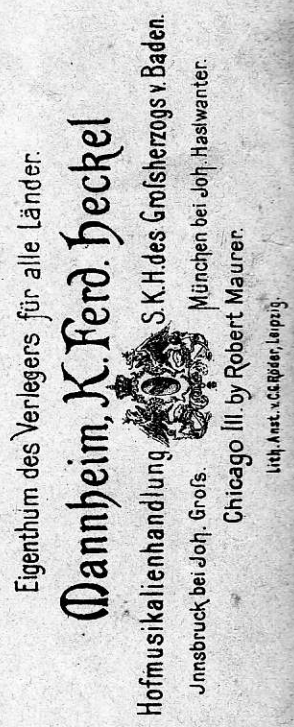 Eigenthum des Verlegers für alle Länder.
Mannheim, K. Ferd. Heckel
Hofmusikalienhandlung S.K.H. des Großherzogs v. Baden.
Jnnsbruck bei Joh. Groſs. München bei Joh. Haslwanter.
Chicago Ill. by Robert Maurer.
Lith. Anst. v. C.G. Röder, Leipzig.